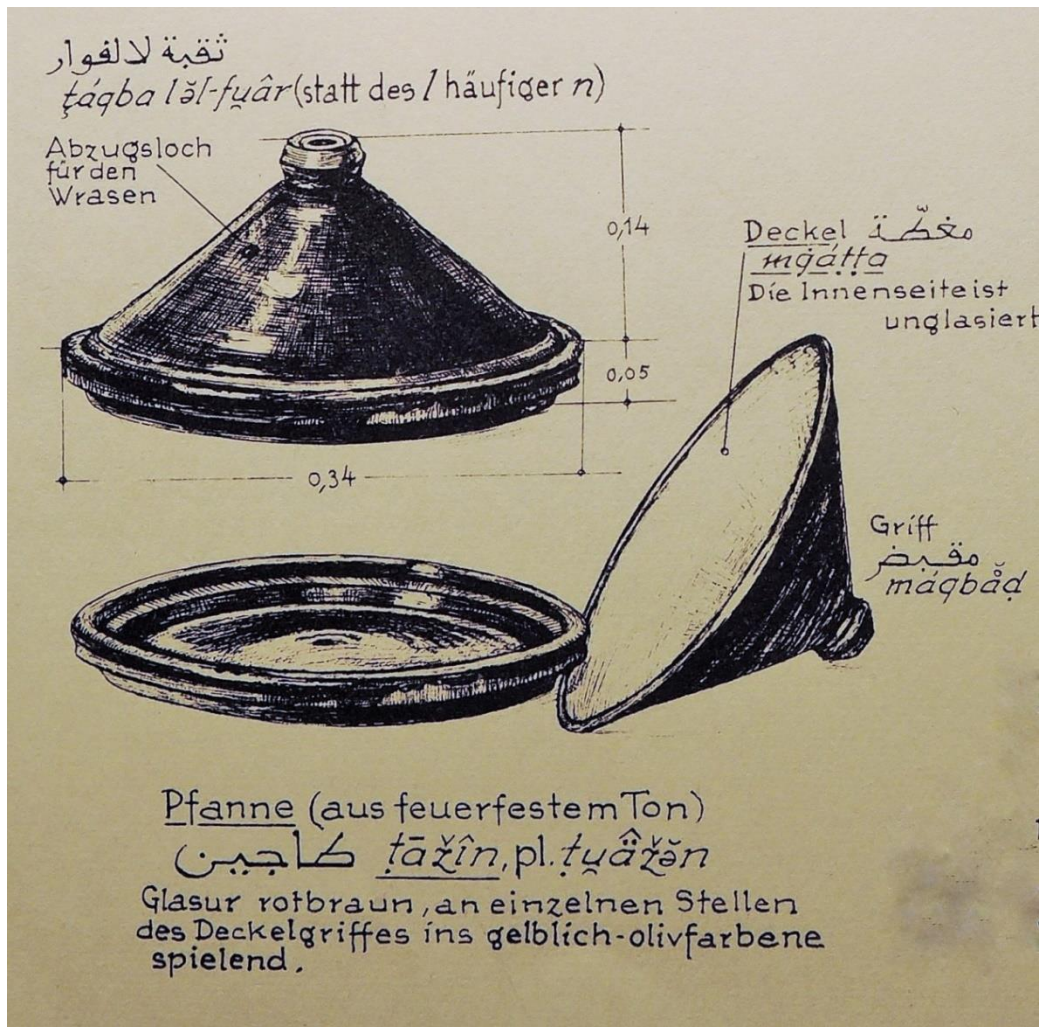 ثقبة لالفوار
ṭáqba lə̆l-fu̯âr (statt des l häufiger n)
Abzugsloch
für den
Wrasen
0,14
Deckel مغطّة
mġáṭṭa
Die Innenseite ist
unglasiert
0,05
0,34
Griff
مقبض
máqbå̆ḍ
Pfanne (aus feuerfestem Ton)
طاجين ṭāžîn, pl. ṭu̯ā̂žə̆n
Glasur rotbraun, an einzelnen Stellen
des Deckelgriffes ins gelblich-olivfarbene
spielend.